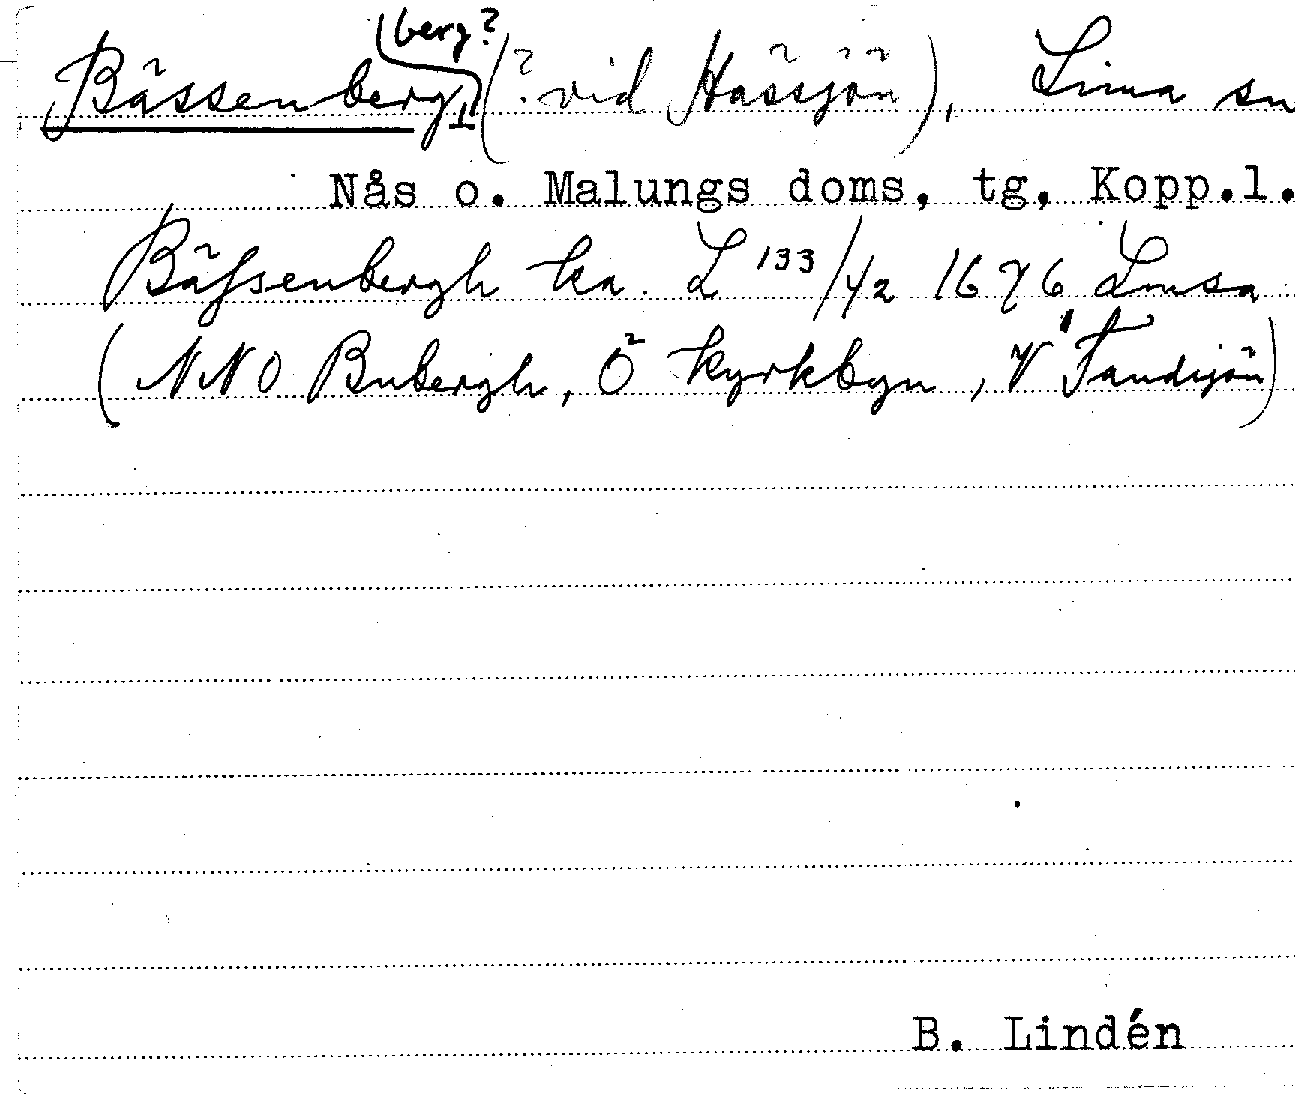 berg?
Bässenberg (? vid Hässjön), Lima sn
Nås o. Malungs doms. tg. Kopp.l.
Bäfsenbergh ka. L 133/42 1676 Lmsa
(NNO Bubergh, Ö kyrkbyn, V Tandsjön)
B. Lindén